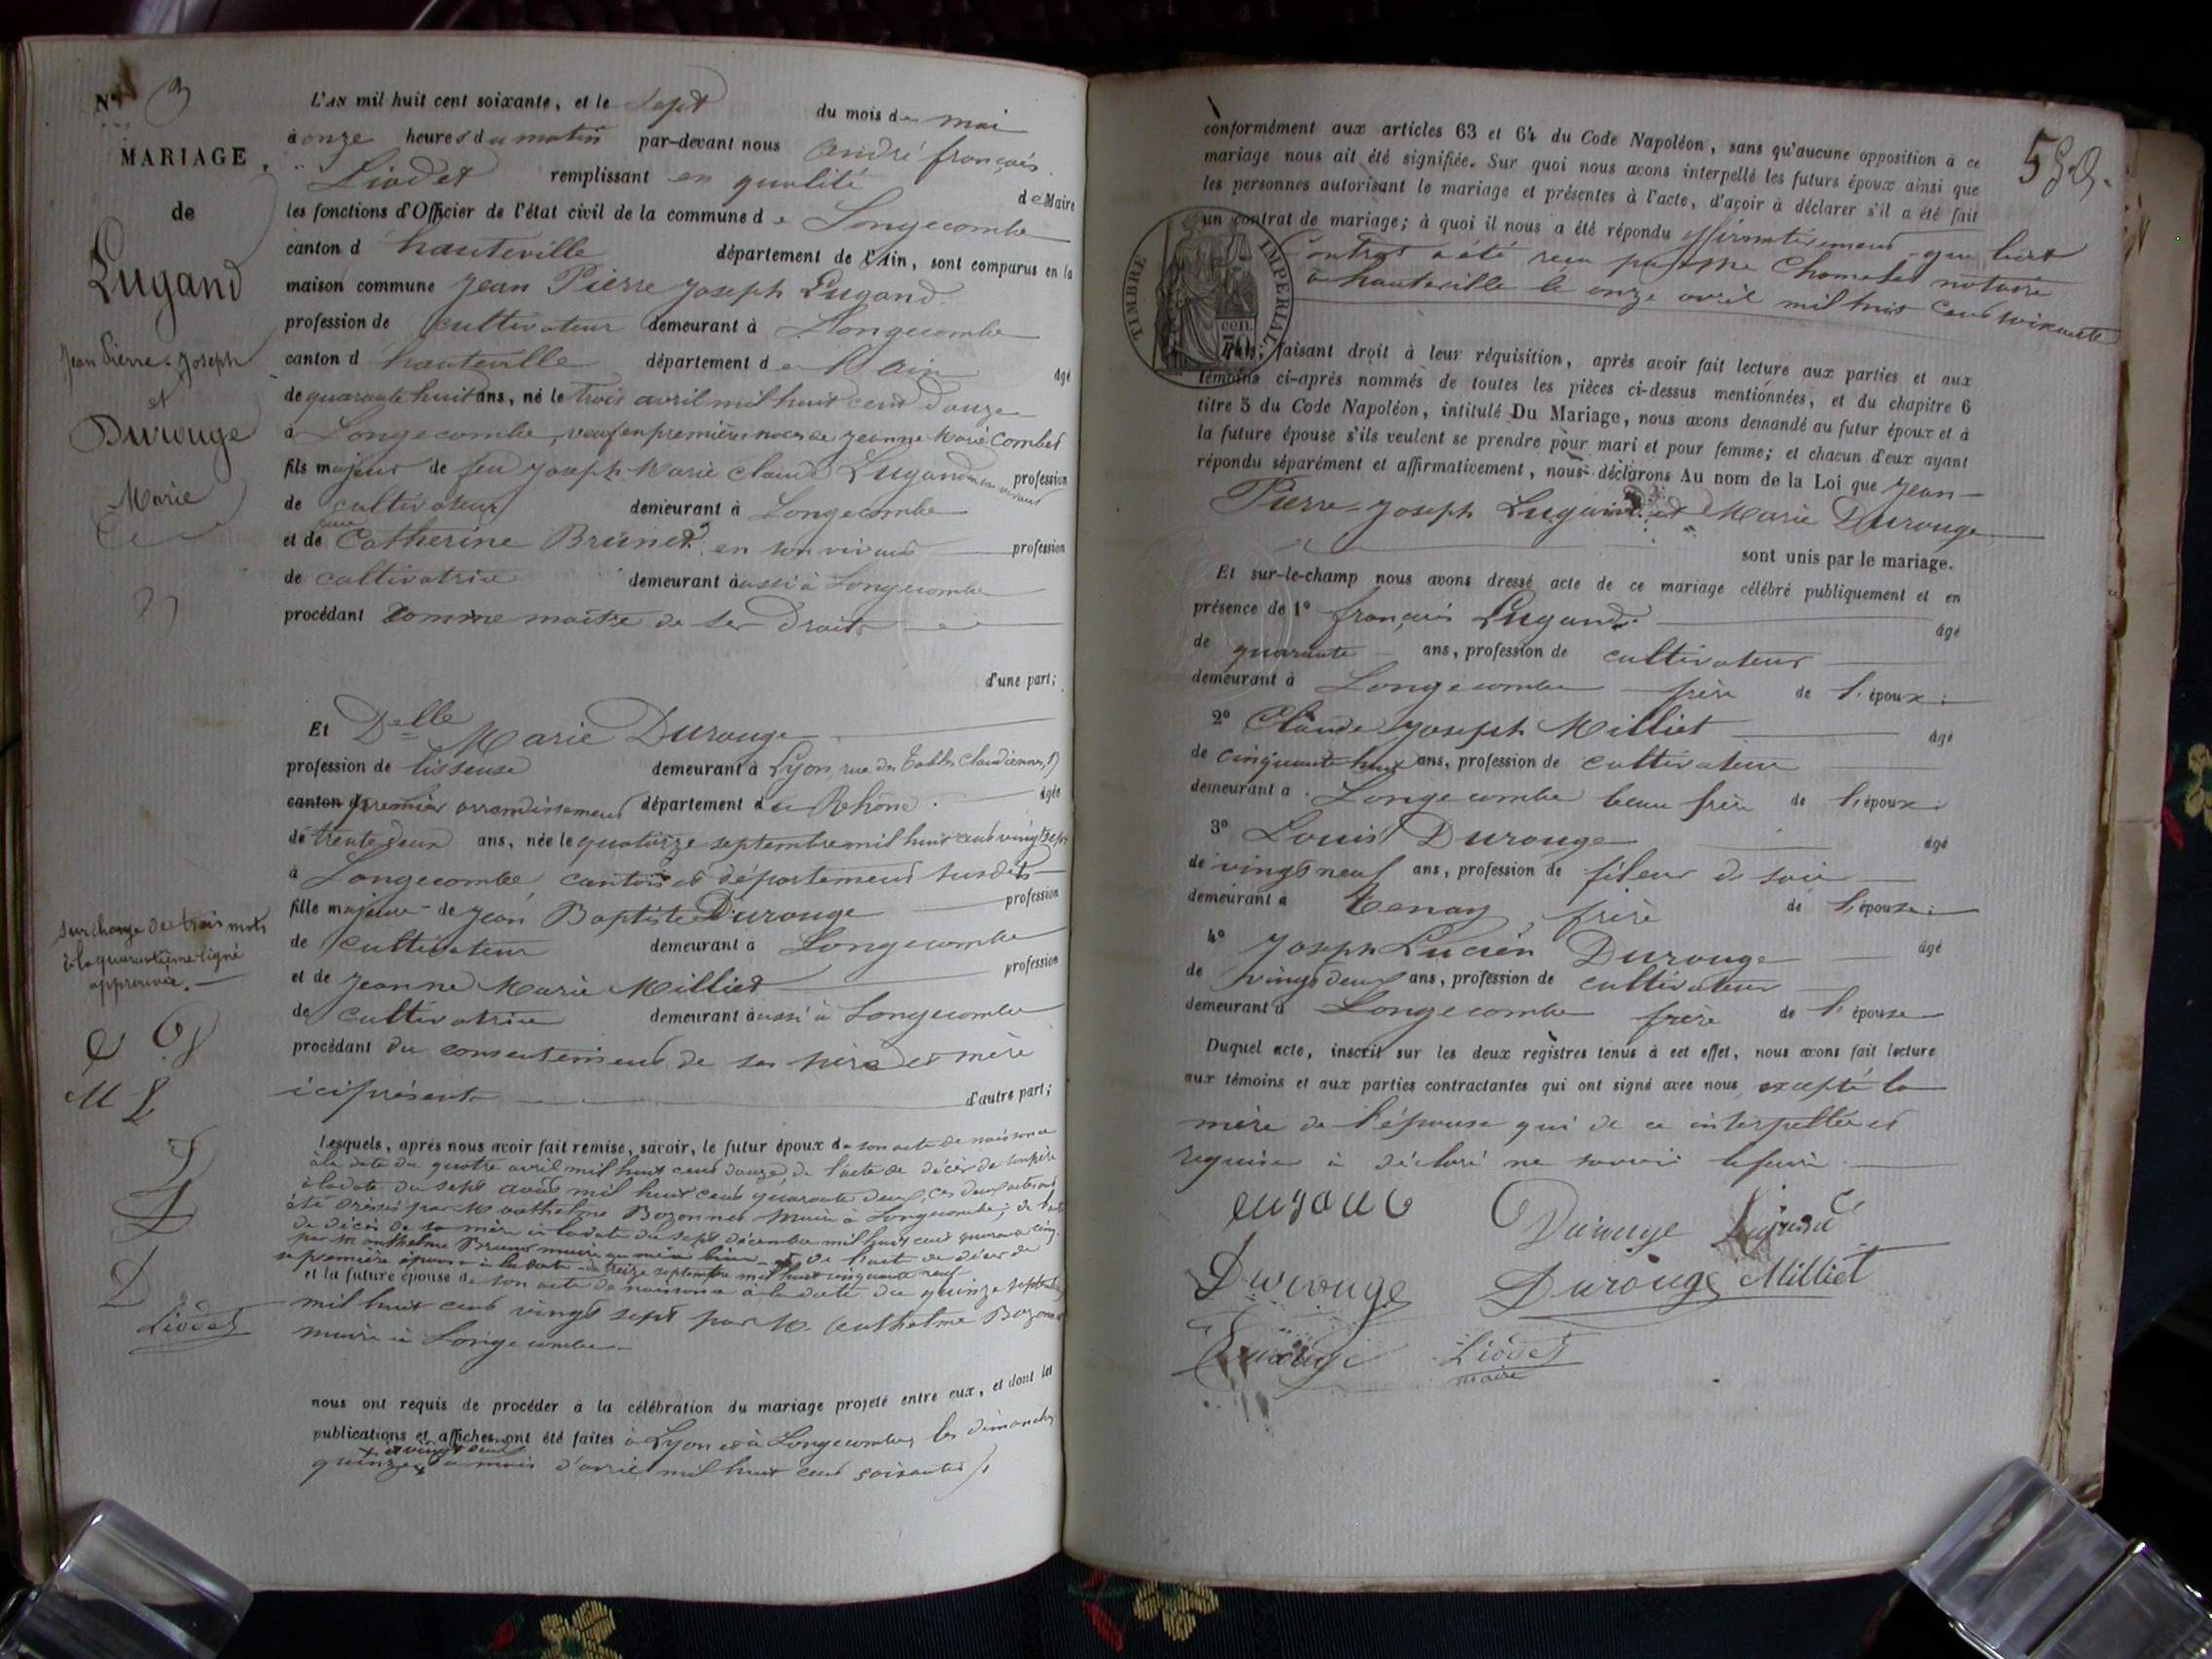 N° 3
MARIAGE
de
Lugand
Jean Pierre Joseph
et
Durouge
Marie
L'AN mil huit cent soixante, et le sept du mois de mai
à onze heures du matin par-devant nous André françois
Liodet remplissant en qualité de Maire
les fonctions d'Officier de l'état civil de la commune de Longecombe
canton d hauteville département de l'Ain, sont comparus en la
maison commune Jean Pierre Joseph Lugand
profession de cultivateur demeurant à Longecombe
canton d hauteville département de l'ain âgé
de quarante huit ans, né le trois avril mil huit cent douze
à Longecombe, veuf en premières noces de Jeanne Marie Combet
fils majeur de feu Joseph Marie Claude Lugand en son vivant profession
de cultivateur demeurant à Longecombe
et de feue Catherine Brunet en son vivant profession
de cultivatrice demeurant aussi à Longecombe
procédant comme maître de ses droits
d'une part;
Et Delle Marie Durouge
profession de lisseuse demeurant à Lyon, rue des Tables Claudiennes,
canton premier arrondissement département du Rhône âgée
de trente deux ans, née le quatorze septembre mil huit cent vingt sept
à Longecombe, canton et département susdits
fille majeure de Jean Baptiste Durouge profession
de cultivateur demeurant à Longecombe
et de Jeanne Marie Milliet profession
de cultivatrice demeurant aussi à Longecombe
procédant du consentement de ses père et mère
ici présents d'autre part;
surcharge de trois mots
à la quarantième ligne
approuvée.
M L
L
D
Liodet
Lesquels, après nous avoir fait remise, savoir, le futur époux de son acte de naissance
à la date du quatre avril mil huit cent douze, de l'acte de décès de son père
à la date du sept août mil huit cent quarante deux, ces deux actes ont
été dressés par M. Anthelme Bozonnet Maire à Longecombe; de l'acte
de décès de sa mère à la date du sept décembre mil huit cent quarante cinq
par M. Anthelme Brunet maire au même lieu et de l'acte de décès de
sa première épouse à la date du treize septembre mil huit cinquante neuf
et la future épouse de son acte de naissance à la date du quinze septembre
mil huit cent vingt sept par M. Anthelme Bozonnet
maire à Longecombe
nous ont requis de procéder à la célébration du mariage projeté entre eux, et dont les
publications et affiches ont été faites à Lyon et à Longecombe, les dimanches
quinze et vingt deux du mois d'avril mil huit cent soixante
conformément aux articles 63 et 64 du Code Napoléon, sans qu'aucune opposition à ce
mariage nous ait été signifiée. Sur quoi nous avons interpellé les futurs époux ainsi que
les personnes autorisant le mariage et présentes à l'acte, d'avoir à déclarer s'il a été fait
un contrat de mariage; à quoi il nous a été répondu affirmativement que leur
Contrat a été reçu par Me Chomel notaire
à hauteville le onze avril mil huit cent soixante
TIMBRE IMPERIAL
50 cen
Nous, faisant droit à leur réquisition, après avoir fait lecture aux parties et aux
témoins ci-après nommés de toutes les pièces ci-dessus mentionnées, et du chapitre 6
titre 5 du Code Napoléon, intitulé Du Mariage, nous avons demandé au futur époux et à
la future épouse s'ils veulent se prendre pour mari et pour femme; et chacun d'eux ayant
répondu séparément et affirmativement, nous déclarons Au nom de la Loi que Jean-
Pierre-Joseph Lugand et Marie Durouge
sont unis par le mariage.
Et sur-le-champ nous avons dressé acte de ce mariage célébré publiquement et en
présence de 1° françois Lugand âgé
de quarante ans, profession de cultivateur
demeurant à Longecombe frère de l'époux;
2° Claude Joseph Milliet âgé
de cinquante huit ans, profession de cultivateur
demeurant à Longecombe beau frère de l'époux;
3° Louis Durouge âgé
de vingt neuf ans, profession de fileur de soie
demeurant à Tenay, frère de l'épouse;
4° Joseph Lucien Durouge âgé
de vingt deux ans, profession de cultivateur
demeurant à Longecombe frère de l'épouse
Duquel acte, inscrit sur les deux registres tenus à cet effet, nous avons fait lecture
aux témoins et aux parties contractantes qui ont signé avec nous, excepté la
mère de l'épouse qui de ce interpellée et
requise à déclaré ne savoir le faire.
Lugand Durouge Lugand
Durouge Durouge Milliet
Durouge Liodet
maire